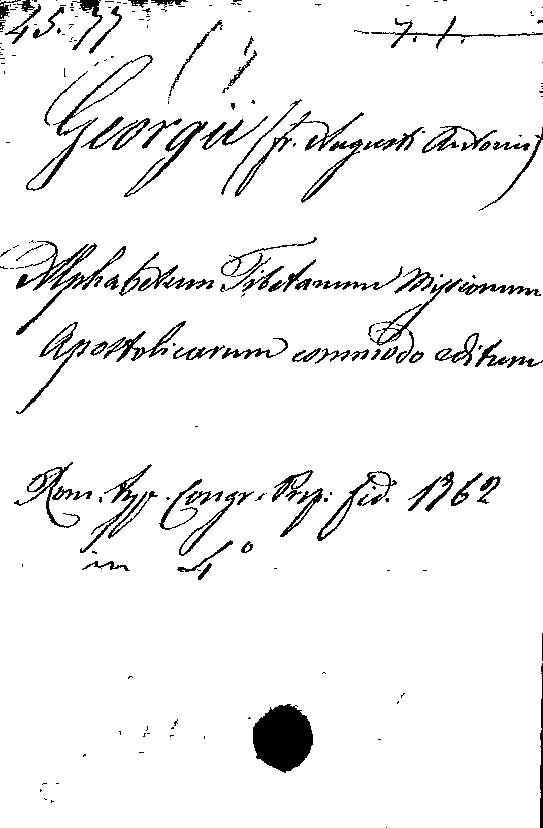 45.77 7.1.
Georgii (fr. Augusti Antonii)
Alphabetum Tibetanum Missionum
Apostolicarum commodo editum
Rom. typ. Congr. Prop. fid. 1762
in 4°